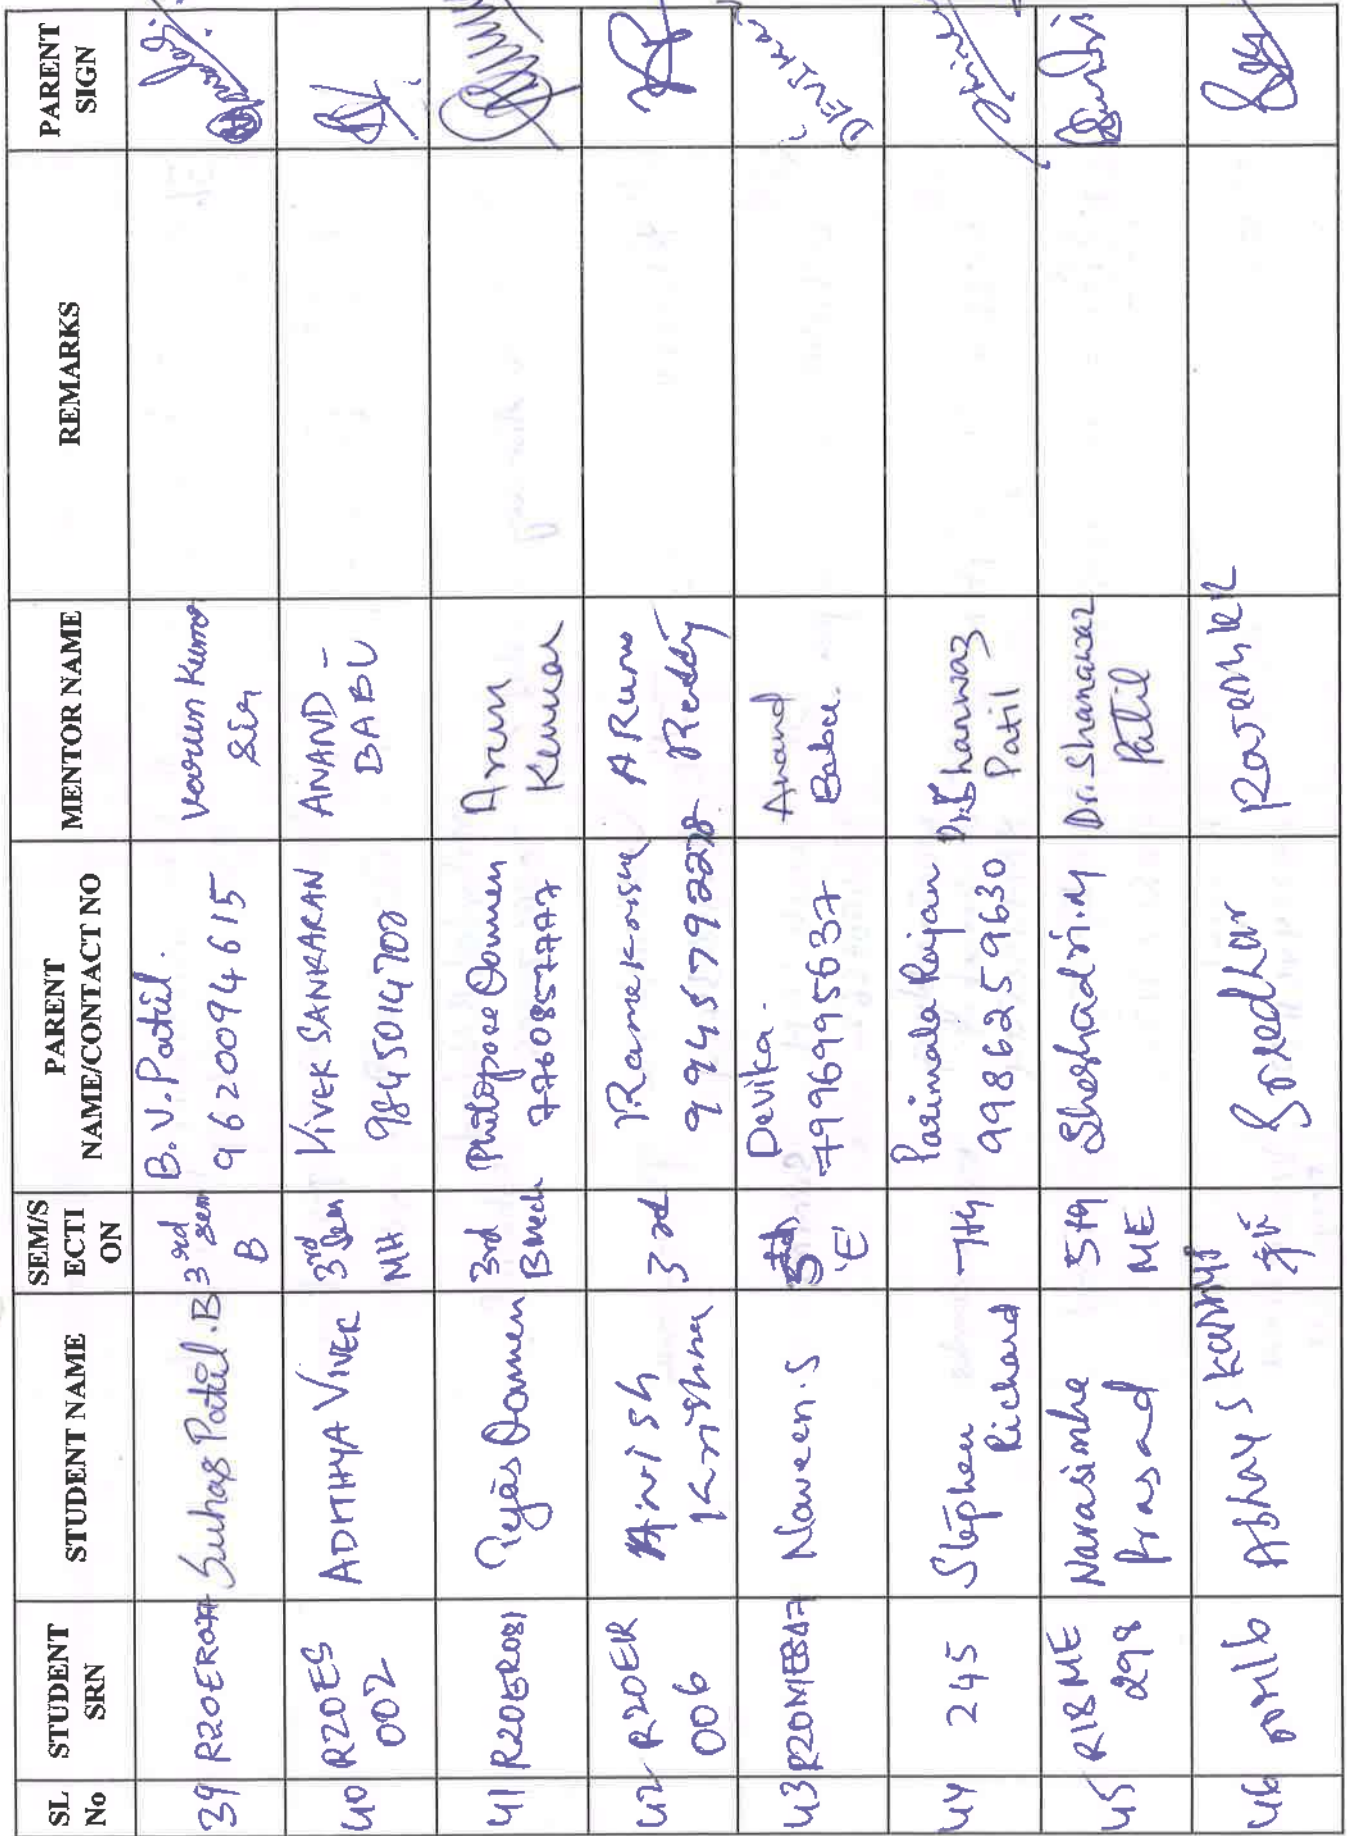 SL No
STUDENT SRN
STUDENT NAME
SEM/S ECTI ON
PARENT NAME/CONTACT NO
MENTOR NAME
REMARKS
PARENT SIGN
39
Suhas Patil.B
3rd sem
B
B.V.Patil.
9620094615
Varun Kumar
Sir
40
R20ES
002
ADITHYA VIVEK
3rd Sem
MH
VIVEK SANKARAN
ANAND -
BABU
41
R20ER081
Tejas Oommen
3rd
B Mech
Philopose Oommen
7760857777
Arun
Kumar
42
R20ER
006
krishna
3rd
9945792278
ARUN
Reddy
43
Naveen.S
'E'
Devika.
7996995637
Anand
Babu.
DEVIKA
44
245
Stephen
Richard
7th
Parimala Rajan
9986259630
Patil
45
R18ME
298
Narasimha
Prasad
5th
ME
Sheshadri.M
Dr.Shanawaz
Patil
46
Abhay S
Sreedhar